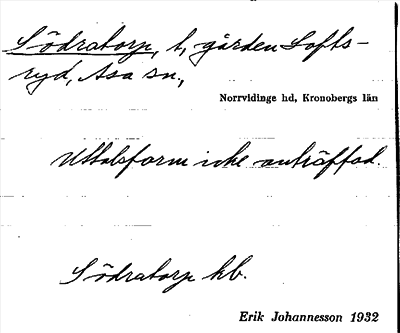 Södratorp, t, gården Lofts-
ryd, Asa sn.,
Norrvidinge hd, Kronobergs län
Uttalsform icke anträffad.
Södratorp hb.
Erik Johannesson 1932